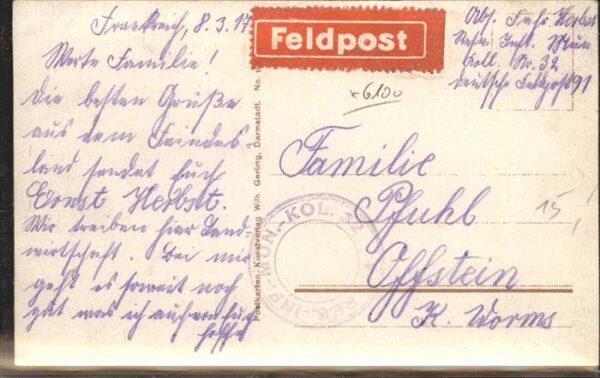 Frankreich, 8.3.17
Werte Familie!
Die besten Grüße
aus dem Feindes-
land sendet Euch
Ernst Herbst.
Wir treiben hier Land
wirtschaft. Bei mir
geht es soweit noch
gut was ich auch von Euch
hoffe
Feldpost
Abs. Herbst
Inft. Mun
Koll. Nr. 32
deutsche Feldpost 91
x6100
Familie
Pfuhl
Offstein
K. Worms
15,
INF.-MUN.-KOL. 32
Postkarten-Kunstverlag Wilh. Gerling, Darmstadt. No. 1